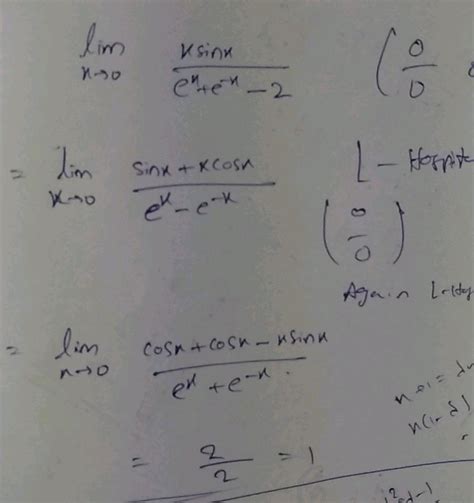 lim x→0 x sinx / e^x + e^-x − 2 (0/0
= lim x→0 sinx + x cosx / e^x − e^-x L – Hospit
(0/0)
Again L-Ho
= lim x→0 cosx + cosx − x sinx / e^x + e^-x.
= 2/2 = 1